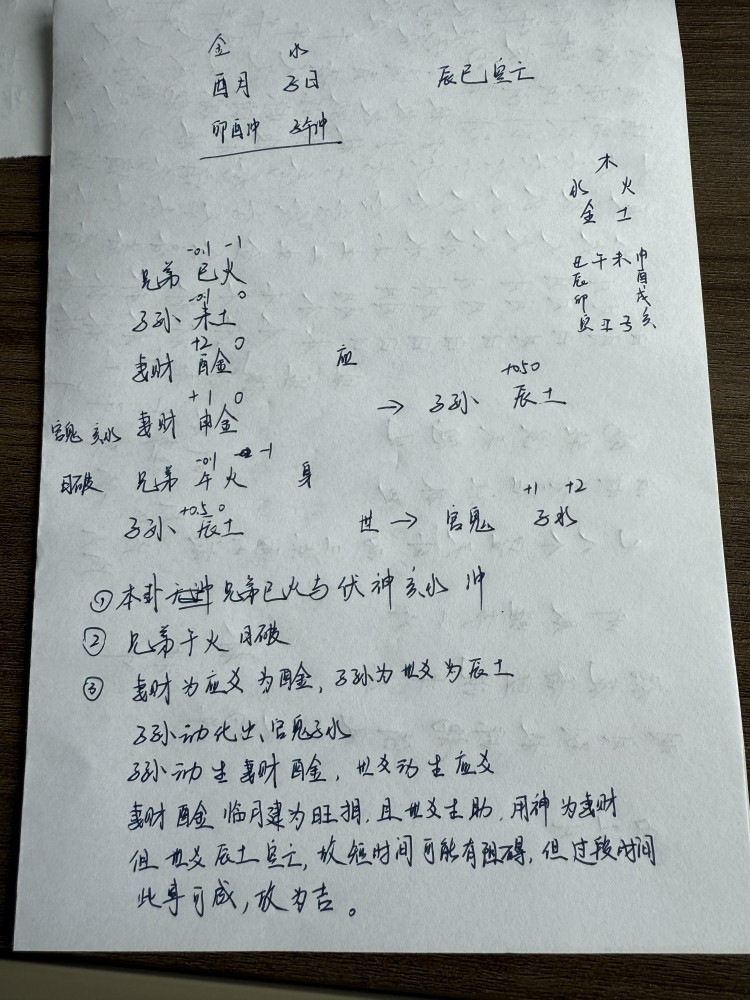 金 水
酉月 子日 辰巳空亡
卯酉冲 子午冲
木
水 火
金 土
巳午未申
辰 酉
卯 戌
寅丑子亥
-0.1 -1
兄弟 巳火
-0.1 0
子孙 未土
+2 0
妻财 酉金 应
+1 0 +0.5 0
官鬼 亥水 妻财 申金 → 子孙 辰土
-0.1 -1
日破 兄弟 午火 身
+0.5 0 +1 +2
子孙 辰土 世 → 官鬼 子水
① 本卦 兄弟巳火与伏神亥水 冲
② 兄弟午火 日破
③ 妻财为应爻为酉金，子孙为世爻为辰土
子孙动化出官鬼子水
子孙动生妻财酉金，世爻动生应爻
妻财酉金临月建为旺相，且世爻生助，用神为妻财
但世爻辰土空亡，故短时间可能有阻碍，但过段时间
此事可成，故为吉。